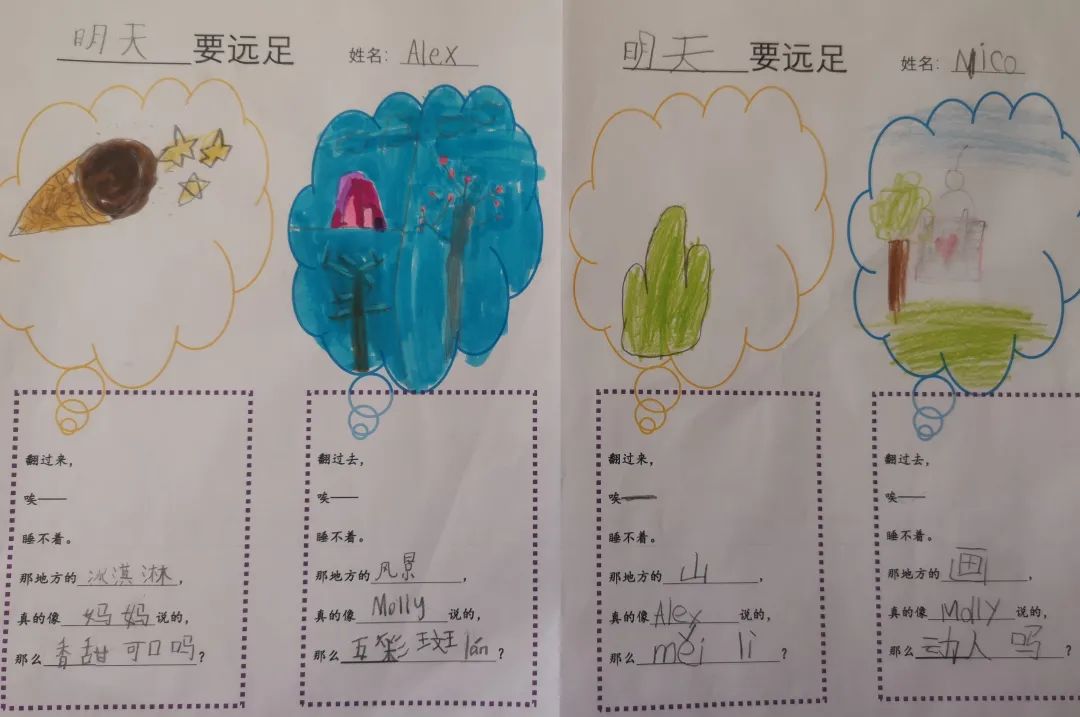 明天 要远足 姓名：Alex
翻过来，
唉——
睡不着。
那地方的冰淇淋，
真的像妈妈说的，
那么香甜可口吗？
翻过去，
唉——
睡不着。
那地方的风景，
真的像Molly说的，
那么五彩斑lán？
明天 要远足 姓名：Nico
翻过来，
唉——
睡不着。
那地方的山，
真的像Alex说的，
那么měi lì？
翻过去，
唉——
睡不着。
那地方的画，
真的像Molly说的，
那么动人吗？